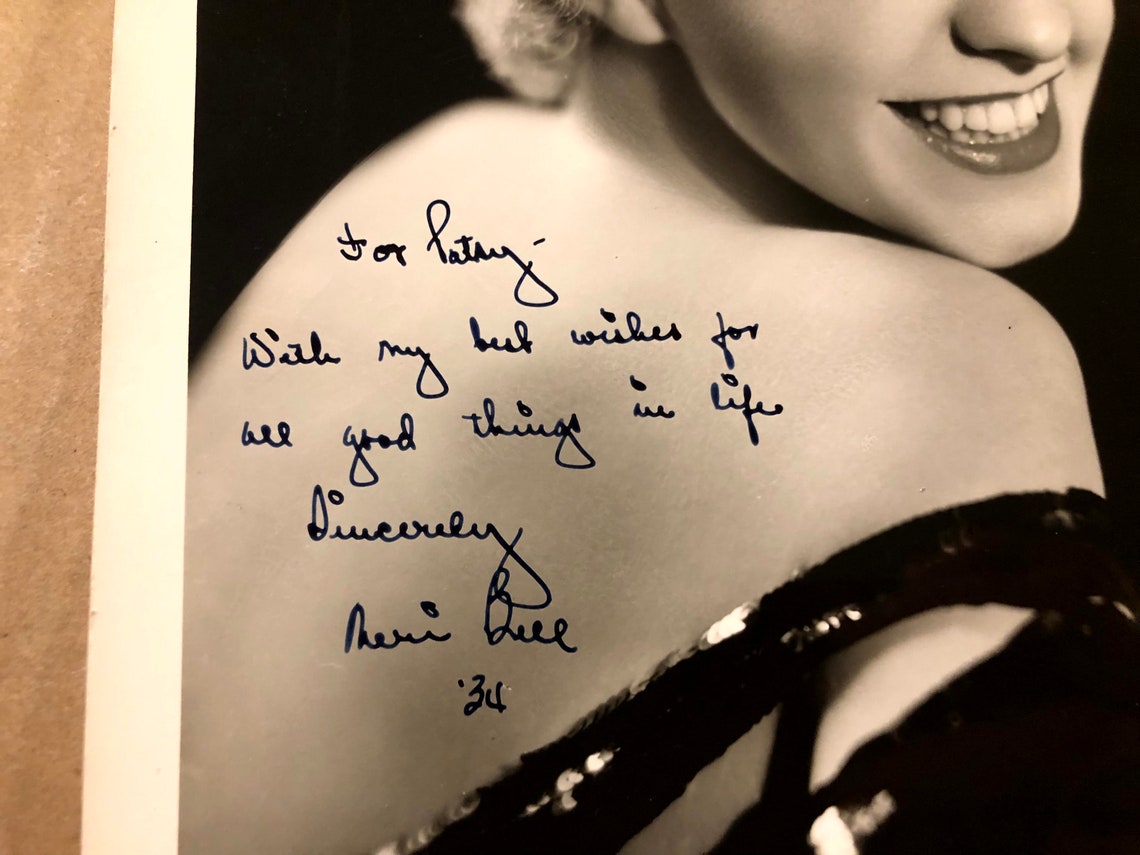 For Patsy-
With my best wishes for
all good things in life
Sincerely
Bell
'34